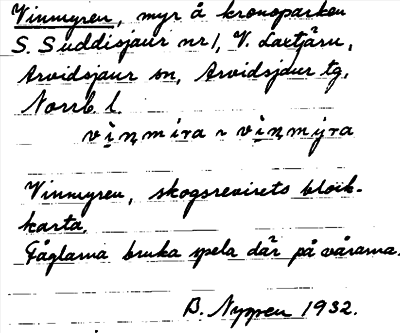 Vinmyren, myr å kronoparken
S. Suddisjaur nr 1, V. Laxtjärn,
Arvidsjaur sn, Arvidsjaur tg,
Norrb. l.
vìṇmira ~ vìṇmyra
Vinmyren, skogsrevirets block-
karta.
Fåglarna bruka spela där på vårarna.
B. Nyppen 1932.